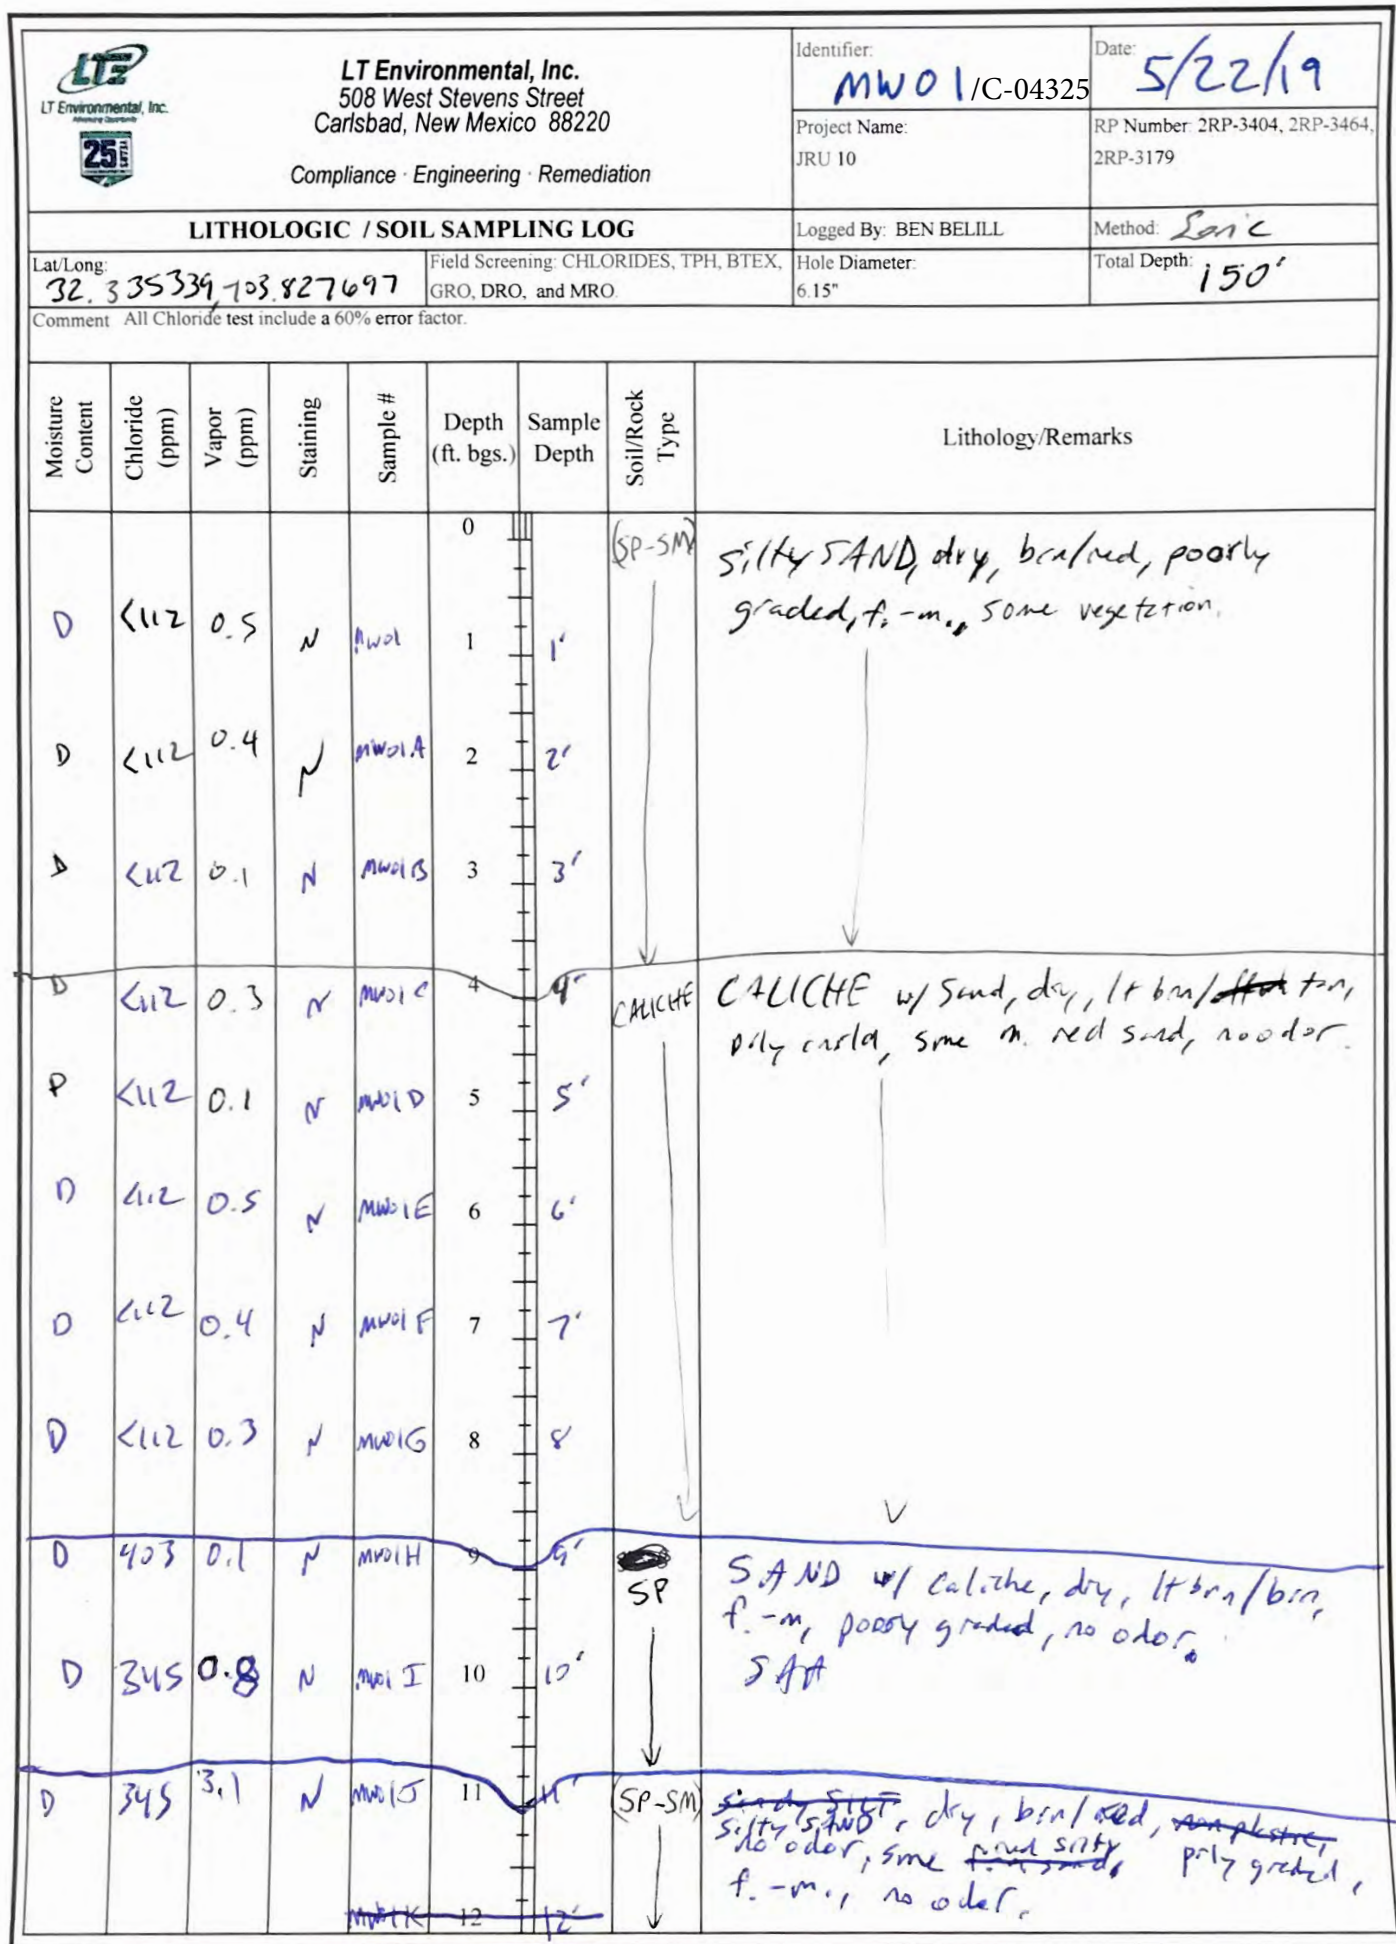 LTE
LT Environmental, Inc.
Advancing Opportunity
25 YEARS
LT Environmental, Inc.
508 West Stevens Street
Carlsbad, New Mexico 88220
Compliance · Engineering · Remediation
Identifier:
MW01/C-04325
Date:
5/22/19
Project Name:
JRU 10
RP Number: 2RP-3404, 2RP-3464,
2RP-3179
LITHOLOGIC / SOIL SAMPLING LOG
Logged By: BEN BELILL
Method: Sonic
Lat/Long:
32.335339,-103.827697
Field Screening: CHLORIDES, TPH, BTEX,
GRO, DRO, and MRO.
Hole Diameter:
6.15"
Total Depth:
150'
Comment All Chloride test include a 60% error factor.
Moisture Content
Chloride (ppm)
Vapor (ppm)
Staining
Sample #
Depth (ft. bgs.)
Sample Depth
Soil/Rock Type
Lithology/Remarks
0 (SP-SM) silty SAND, dry, brn/red, poorly
graded, f.-m., some vegetation.
D <112 0.5 N MW01 1 1'
D <112 0.4 N MW01A 2 2'
D <112 0.1 N MW01B 3 3'
D <112 0.3 N MW01C 4 4' CALICHE CALICHE w/ Sand, dry, lt brn/ tan,
some m. red sand, no odor.
P <112 0.1 N MW01D 5 5'
D <112 0.5 N MW01E 6 6'
D <112 0.4 N MW01F 7 7'
D <112 0.3 N MW01G 8 8'
D 403 0.1 N MW01H 9 9' SP SAND w/ Caliche, dry, lt brn/brn,
f.-m, poory graded, no odor.
D 345 0.8 N MW01I 10 10' SAA
D 345 3.1 N MW01J 11 11' (SP-SM) sandy SILT
silty SAND, dry, brn/red, non plastic,
no odor, some silty prly graded,
f.-m., no odor.
MW01K 12 12'